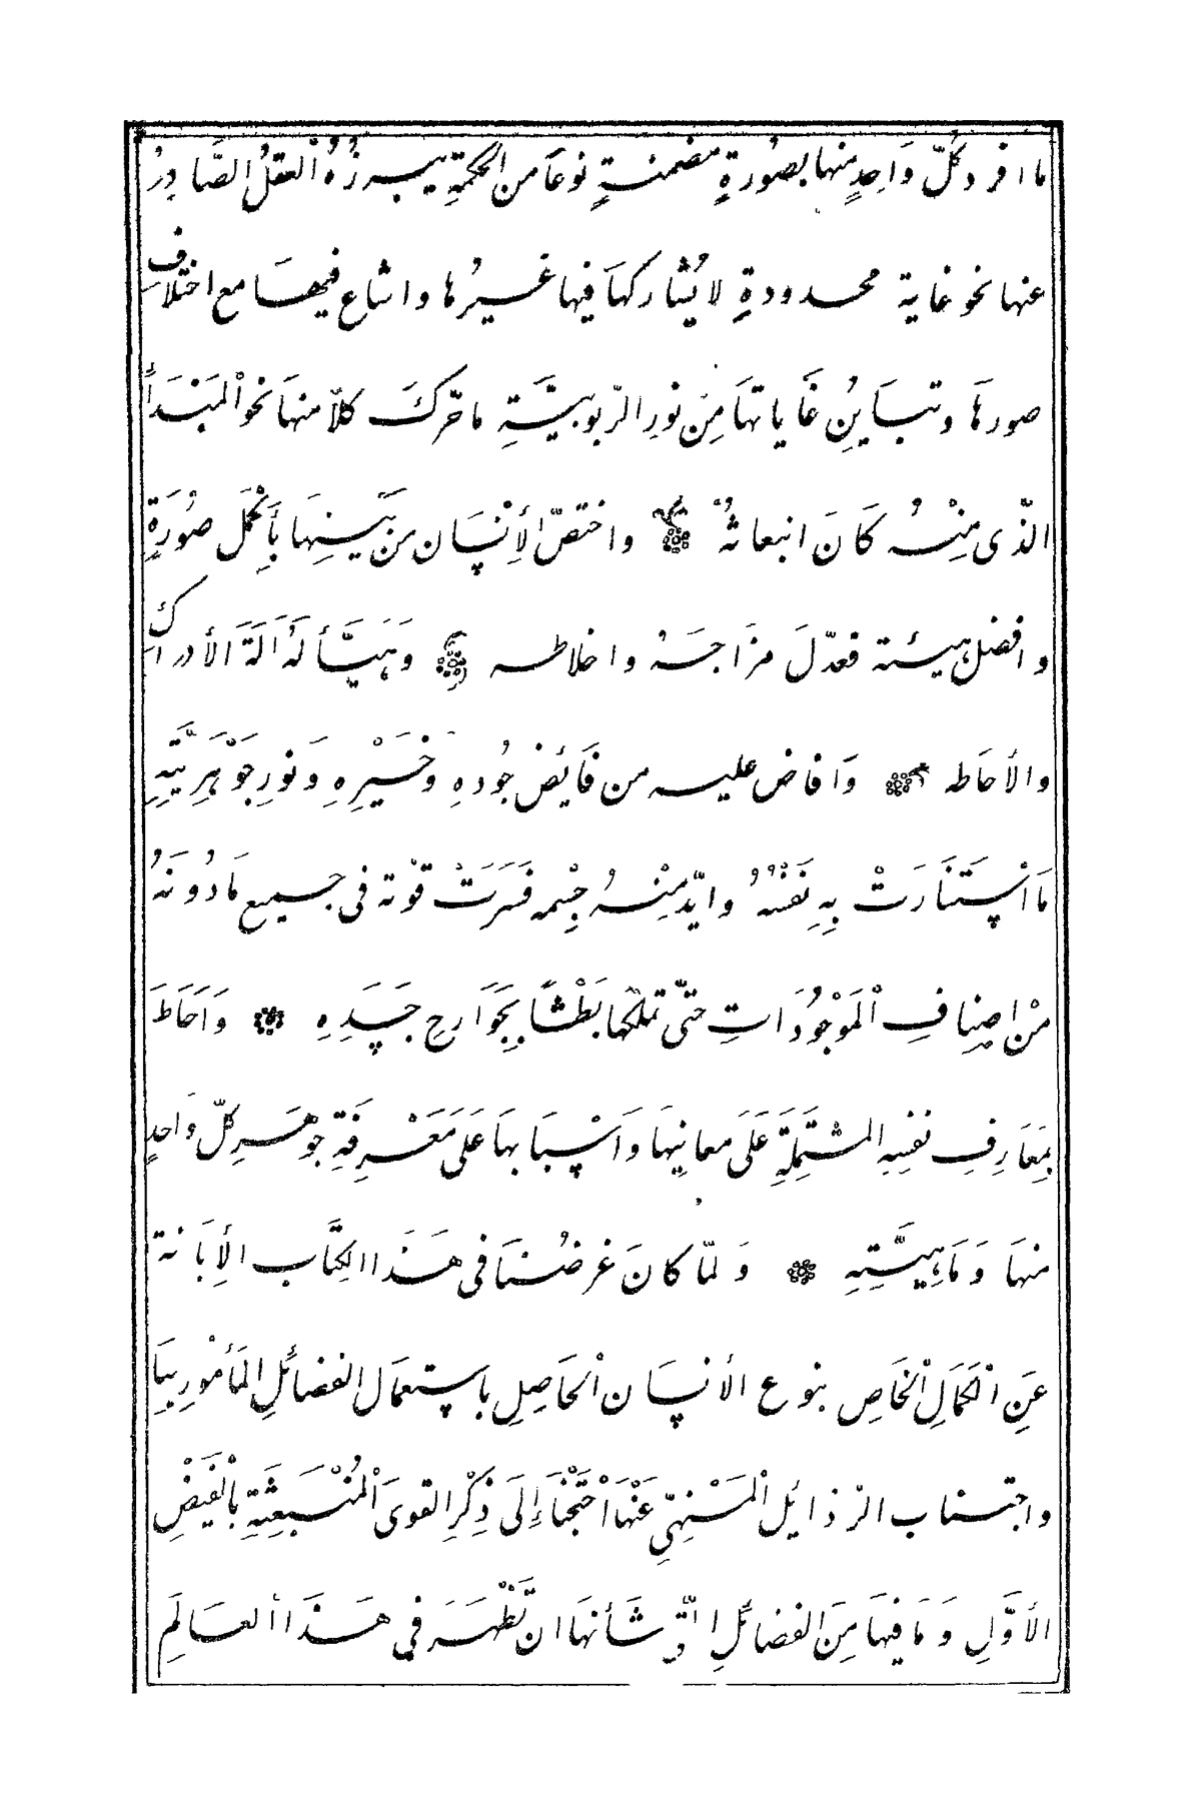 ما افرد كُلّ وَاحِدٍ منها بصُورةٍ مضمنةٍ نوعَاً من الحِكمةِ يبرزُهُ العقلُ الصَّادِرُ
عنها نحو غاية محدودةٍ لا يُشاركهَا فيها غيرُها واشاع فيهَا مع اختلافِ
صورهَا وتبَايُنِ غَاياتهَا مِن نورِ الرّبوبيَّةِ ما حَرّكَ كلاّ منهَا نحو المبَدَأ
الّذى مِنْهُ كَانَ انبعاثهُ واختصّ الأِنْسَان من بَينِهَا بِأَكْمَل صُورَةٍ
وافضل هيئة فعدّلَ مزَاجَهُ واخلاطه وَهَيَّأَ لَهُ الَةَ الأدراكِ
والأحَاطه وَافاض عليه من فَائضِ جُودهِ وَخَيْرِهِ وَنورِ جَوْهَرِيَّتِهِ
مَا اسْتَنَارَتْ بِهِ نَفْسُهُ وايّد مِنْهُ جِسْمه فَسَرَتْ قوّته فى جميع مَا دُونَهُ
مِنْ اصنافِ الْمَوْجُودَاتِ حتّى تملّكها بَطْشَاً بِجَوَارِحِ جَسَدِهِ وَاَحَاطَ
بِمَعَارِفِ نفسِهِ المشتَمِلَةِ عَلَى معانِيهَا وَاَسْبَابهَا عَلى مَعْرفَةِ جَوْهَرِ كلّ وَاحدٍ
منهَا وَمَاهِيَّتِهِ وَلمّا كانَ غرضُنَا فى هَذَا الكِتَابِ الأِبَانة
عَنِ الْكَمَالِ الْخَاصِ بنوع الأنسَان الْحَاصِلِ باستِعْمَال الفضائلِ المَأمُورِ بِهَا
واجتناب الرّذائل الْمَنْهِىّ عَنْهَا اَحْتَجْنَا إِلَى ذِكْرِ القوى الْمُنْبَعِثَةِ بِالْفَيْضِ
الأوَّلِ وَمَا فيهَا مِنَ الفضائلِ الَّتى شَأنهَا ان تَظْهَرَ فى هَذَا العَالَمِ